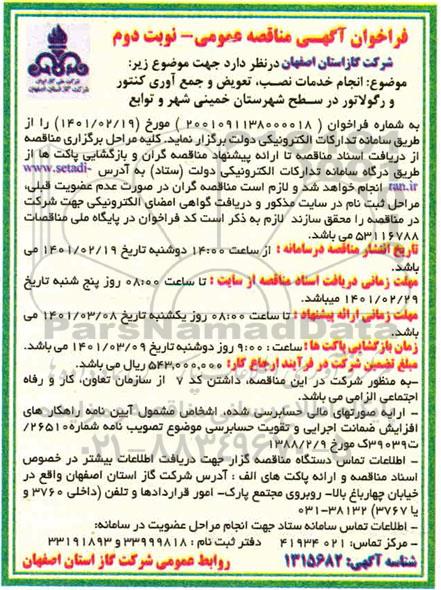 فراخوان آگهی مناقصه عمومی- نوبت دوم
شرکت گاز استان اصفهان
شرکت گاز استان اصفهان درنظر دارد جهت موضوع زیر:
موضوع: انجام خدمات نصب، تعویض و جمع آوری کنتور
و رگولاتور در سطح شهرستان خمینی شهر و توابع
به شماره فراخوان ( 2001091138000018 ) مورخ (1401/02/19) را از
طریق سامانه تدارکات الکترونیکی دولت برگزار نماید. کلیه مراحل برگزاری مناقصه
از دریافت اسناد مناقصه تا ارائه پیشنهاد مناقصه گران و بازگشایی پاکت ها از
طریق درگاه سامانه تدارکات الکترونیکی دولت (ستاد) به آدرس www.setadi-
ran.ir انجام خواهد شد و لازم است مناقصه گران در صورت عدم عضویت قبلی،
مراحل ثبت نام در سایت مذکور و دریافت گواهی امضای الکترونیکی جهت شرکت
در مناقصه را محقق سازند لازم به ذکر است کد فراخوان در پایگاه ملی مناقصات
53116788 می باشد.
تاریخ انتشار مناقصه در سامانه : از ساعت 14:00 دوشنبه تاریخ 1401/02/19 می
باشد.
مهلت زمانی دریافت اسناد مناقصه از سایت : تا ساعت 08:00 روز پنج شنبه تاریخ
1401/02/29 میباشد.
مهلت زمانی ارائه پیشنهاد : تا ساعت 08:00 روز یکشنبه تاریخ 1401/03/08 می
باشد.
زمان بازگشایی پاکت ها : ساعت : 9:00 روز دوشنبه تاریخ 1401/03/09 می باشد.
مبلغ تضمین شرکت در فرآیند ارجاع کار: 543,000,000 ریال می باشد.
-به منظور شرکت در این مناقصه، داشتن کد 7 از سازمان تعاون، کار و رفاه
اجتماعی الزامی می باشد.
- ارایه صورتهای مالی حسابرسی شده، اشخاص مشمول آیین نامه راهکار های
افزایش ضمانت اجرایی و تقویت حسابرسی موضوع تصویب نامه شماره 26510/
ت39039ک مورخ 1388/2/9
- اطلاعات تماس دستگاه مناقصه گزار جهت دریافت اطلاعات بیشتر در خصوص
اسناد مناقصه و ارائه پاکت های الف : آدرس شرکت گاز استان اصفهان واقع در
خیابان چهارباغ بالا- روبروی مجتمع پارک- امور قراردادها و تلفن (داخلی 3760 و
یا 3767) 38132-031
- اطلاعات تماس سامانه ستاد جهت انجام مراحل عضویت در سامانه:
- مرکز تماس: 021 41934 دفتر ثبت نام : 33999818 و 33191893
شناسه آگهی: 1315682
روابط عمومی شرکت گاز استان اصفهان
ParsNamadData
021-88349670